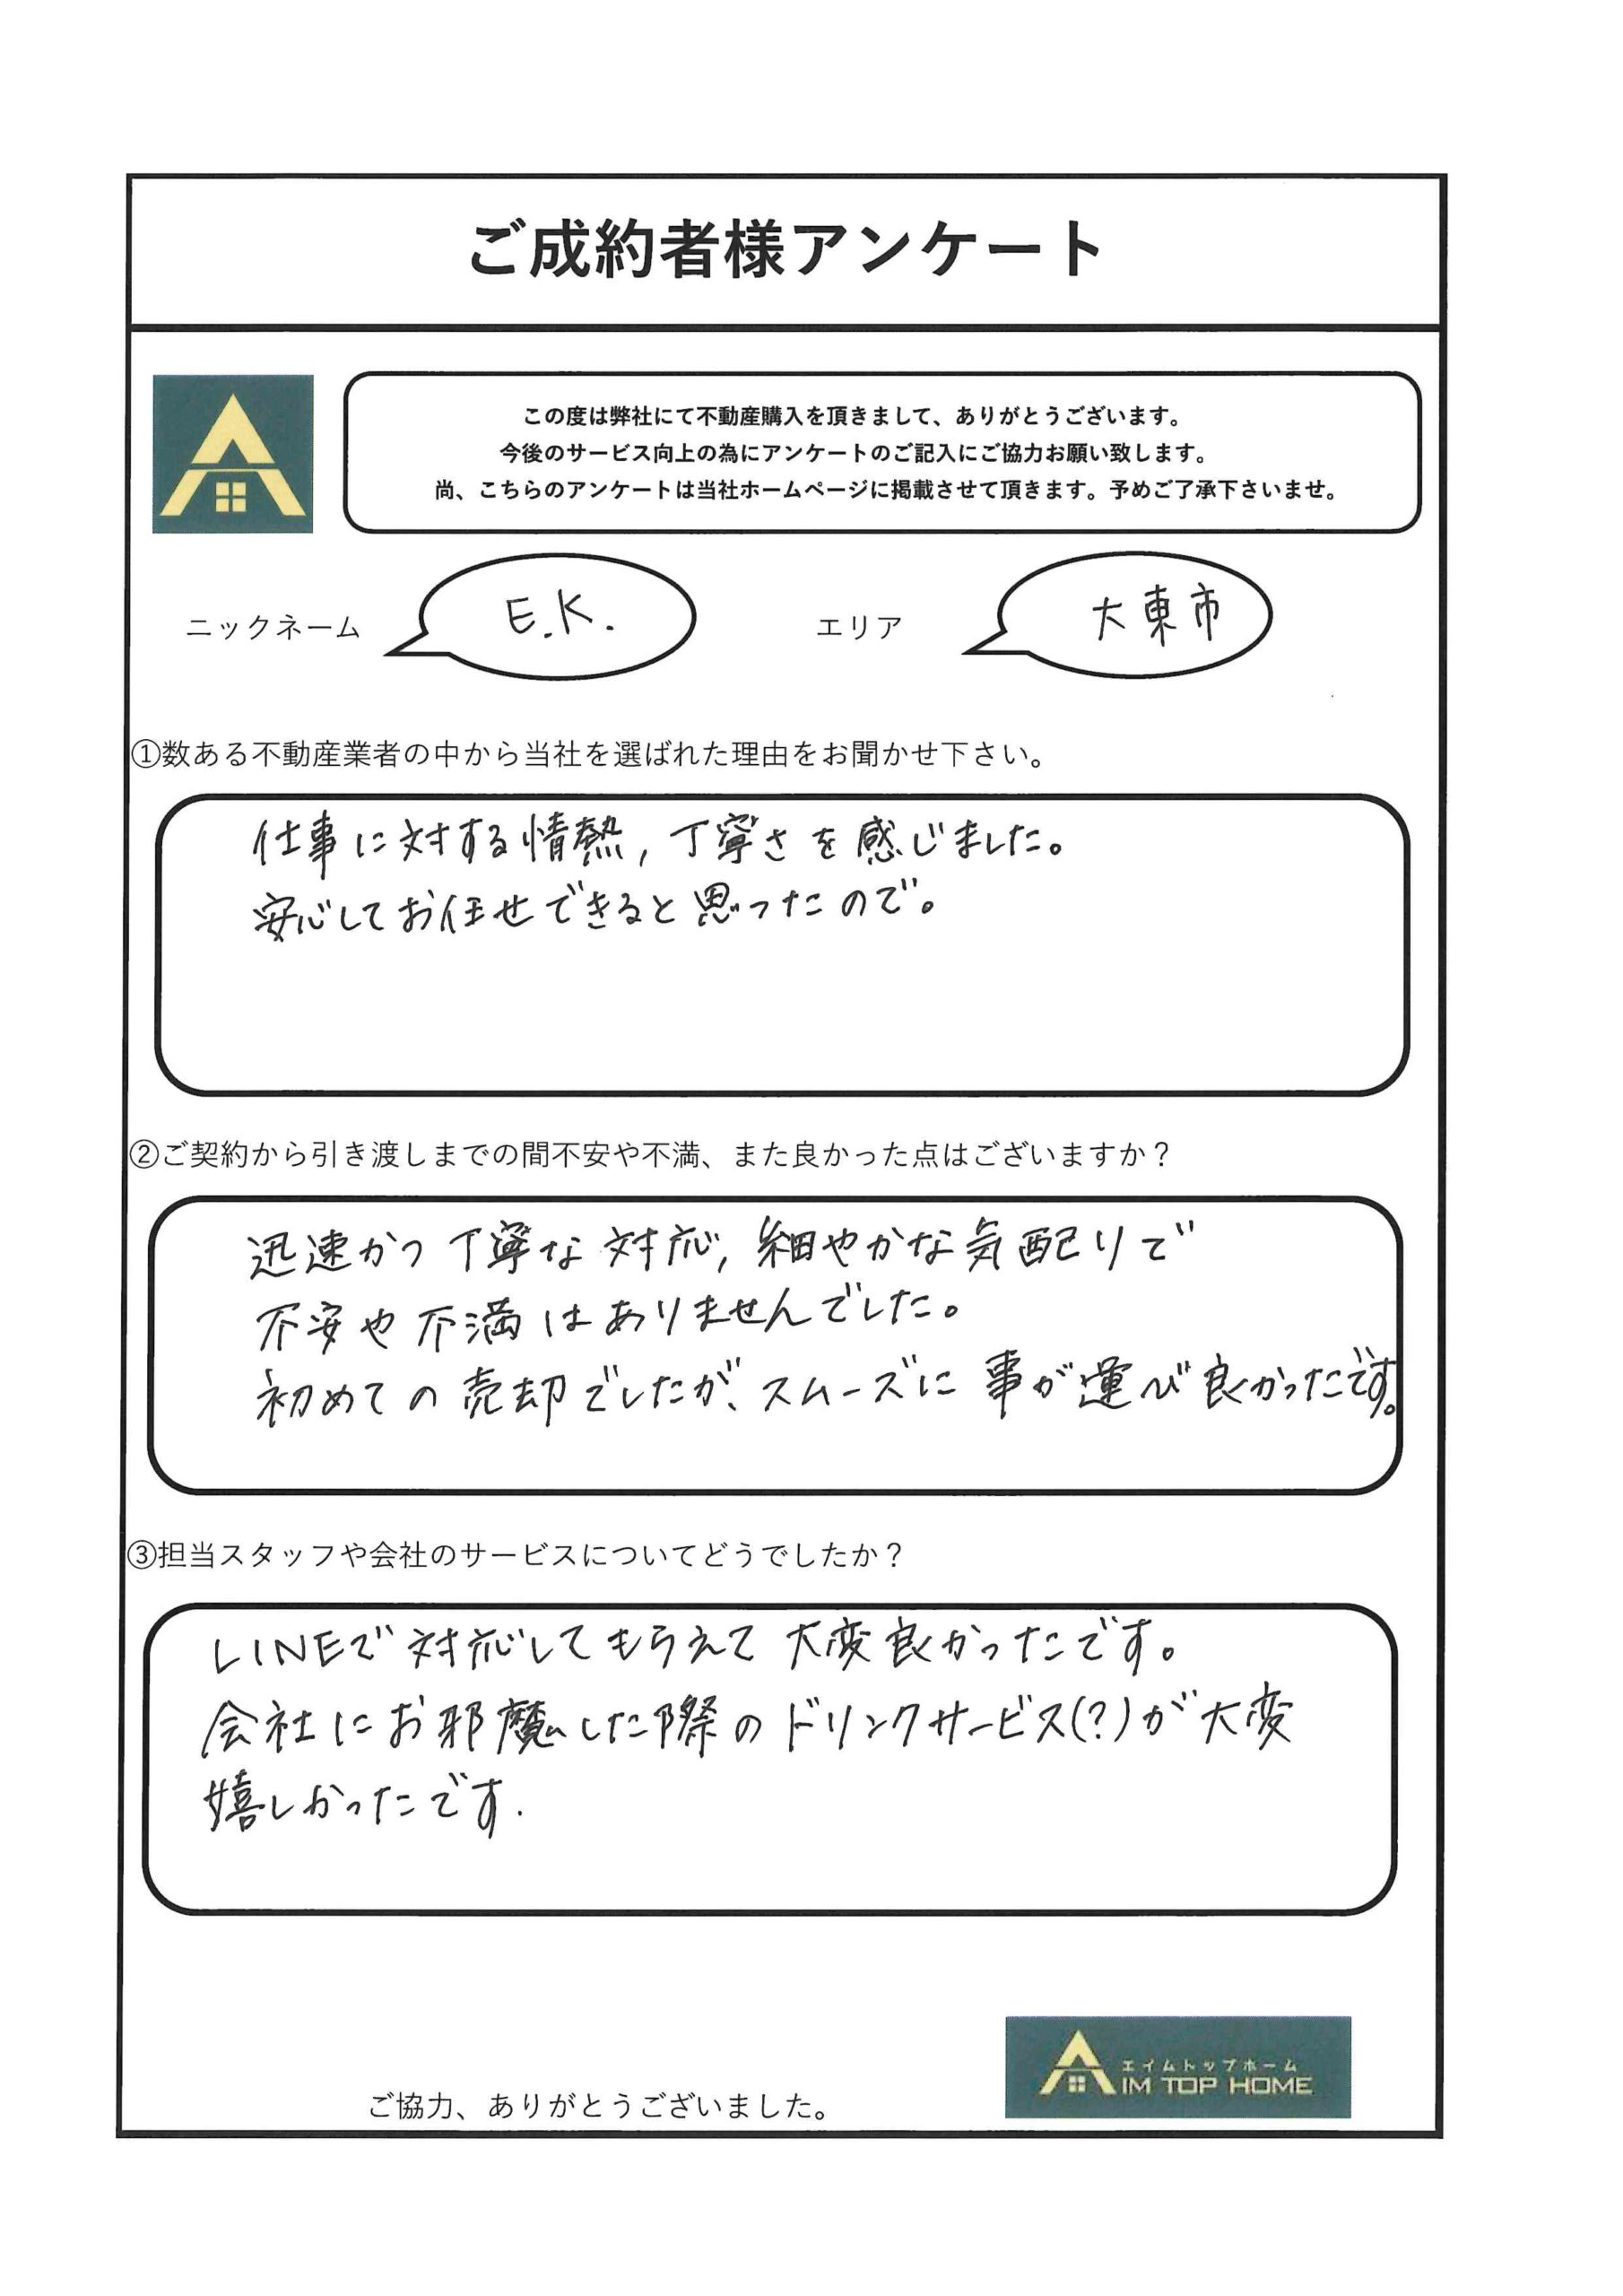 ご成約者様アンケート
この度は弊社にて不動産購入を頂きまして、ありがとうございます。
今後のサービス向上の為にアンケートのご記入にご協力お願い致します。
尚、こちらのアンケートは当社ホームページに掲載させて頂きます。予めご了承下さいませ。
ニックネーム E.K. エリア 大東市
①数ある不動産業者の中から当社を選ばれた理由をお聞かせ下さい。
仕事に対する情熱，丁寧さを感じました。
安心してお任せできると思ったので。
②ご契約から引き渡しまでの間不安や不満、また良かった点はございますか？
迅速かつ丁寧な対応，細やかな気配りで
不安や不満はありませんでした。
初めての売却でしたが、スムーズに事が運び良かったです。
③担当スタッフや会社のサービスについてどうでしたか？
LINEで対応してもらえて大変良かったです。
会社にお邪魔した際のドリンクサービス(?)が大変
嬉しかったです.
エイムトップホーム
AIM TOP HOME
ご協力、ありがとうございました。